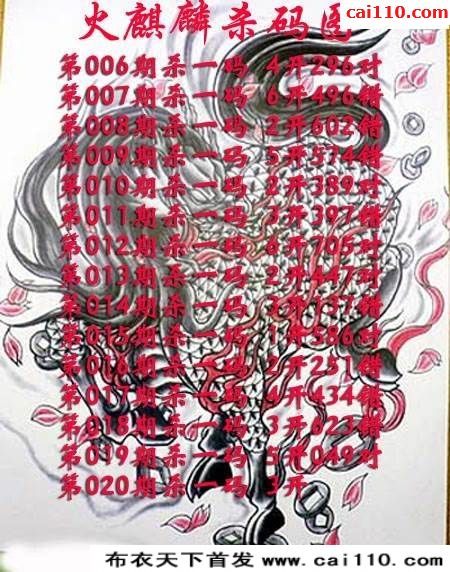 cai110.com
火麒麟杀码
第006期杀一码 4开296对
第007期杀一码 6开496错
第008期杀一码 2开602错
第009期杀一码 5开574错
第010期杀一码 2开389对
第011期杀一码 3开397错
第012期杀一码 6开705对
第013期杀一码 2开447对
第014期杀一码 3开137错
第015期杀一码 1开586对
第016期杀一码 2开251错
第017期杀一码 4开434错
第018期杀一码 3开623错
第019期杀一码 5开049对
第020期杀一码 3开
布衣天下首发 www.cai110.com